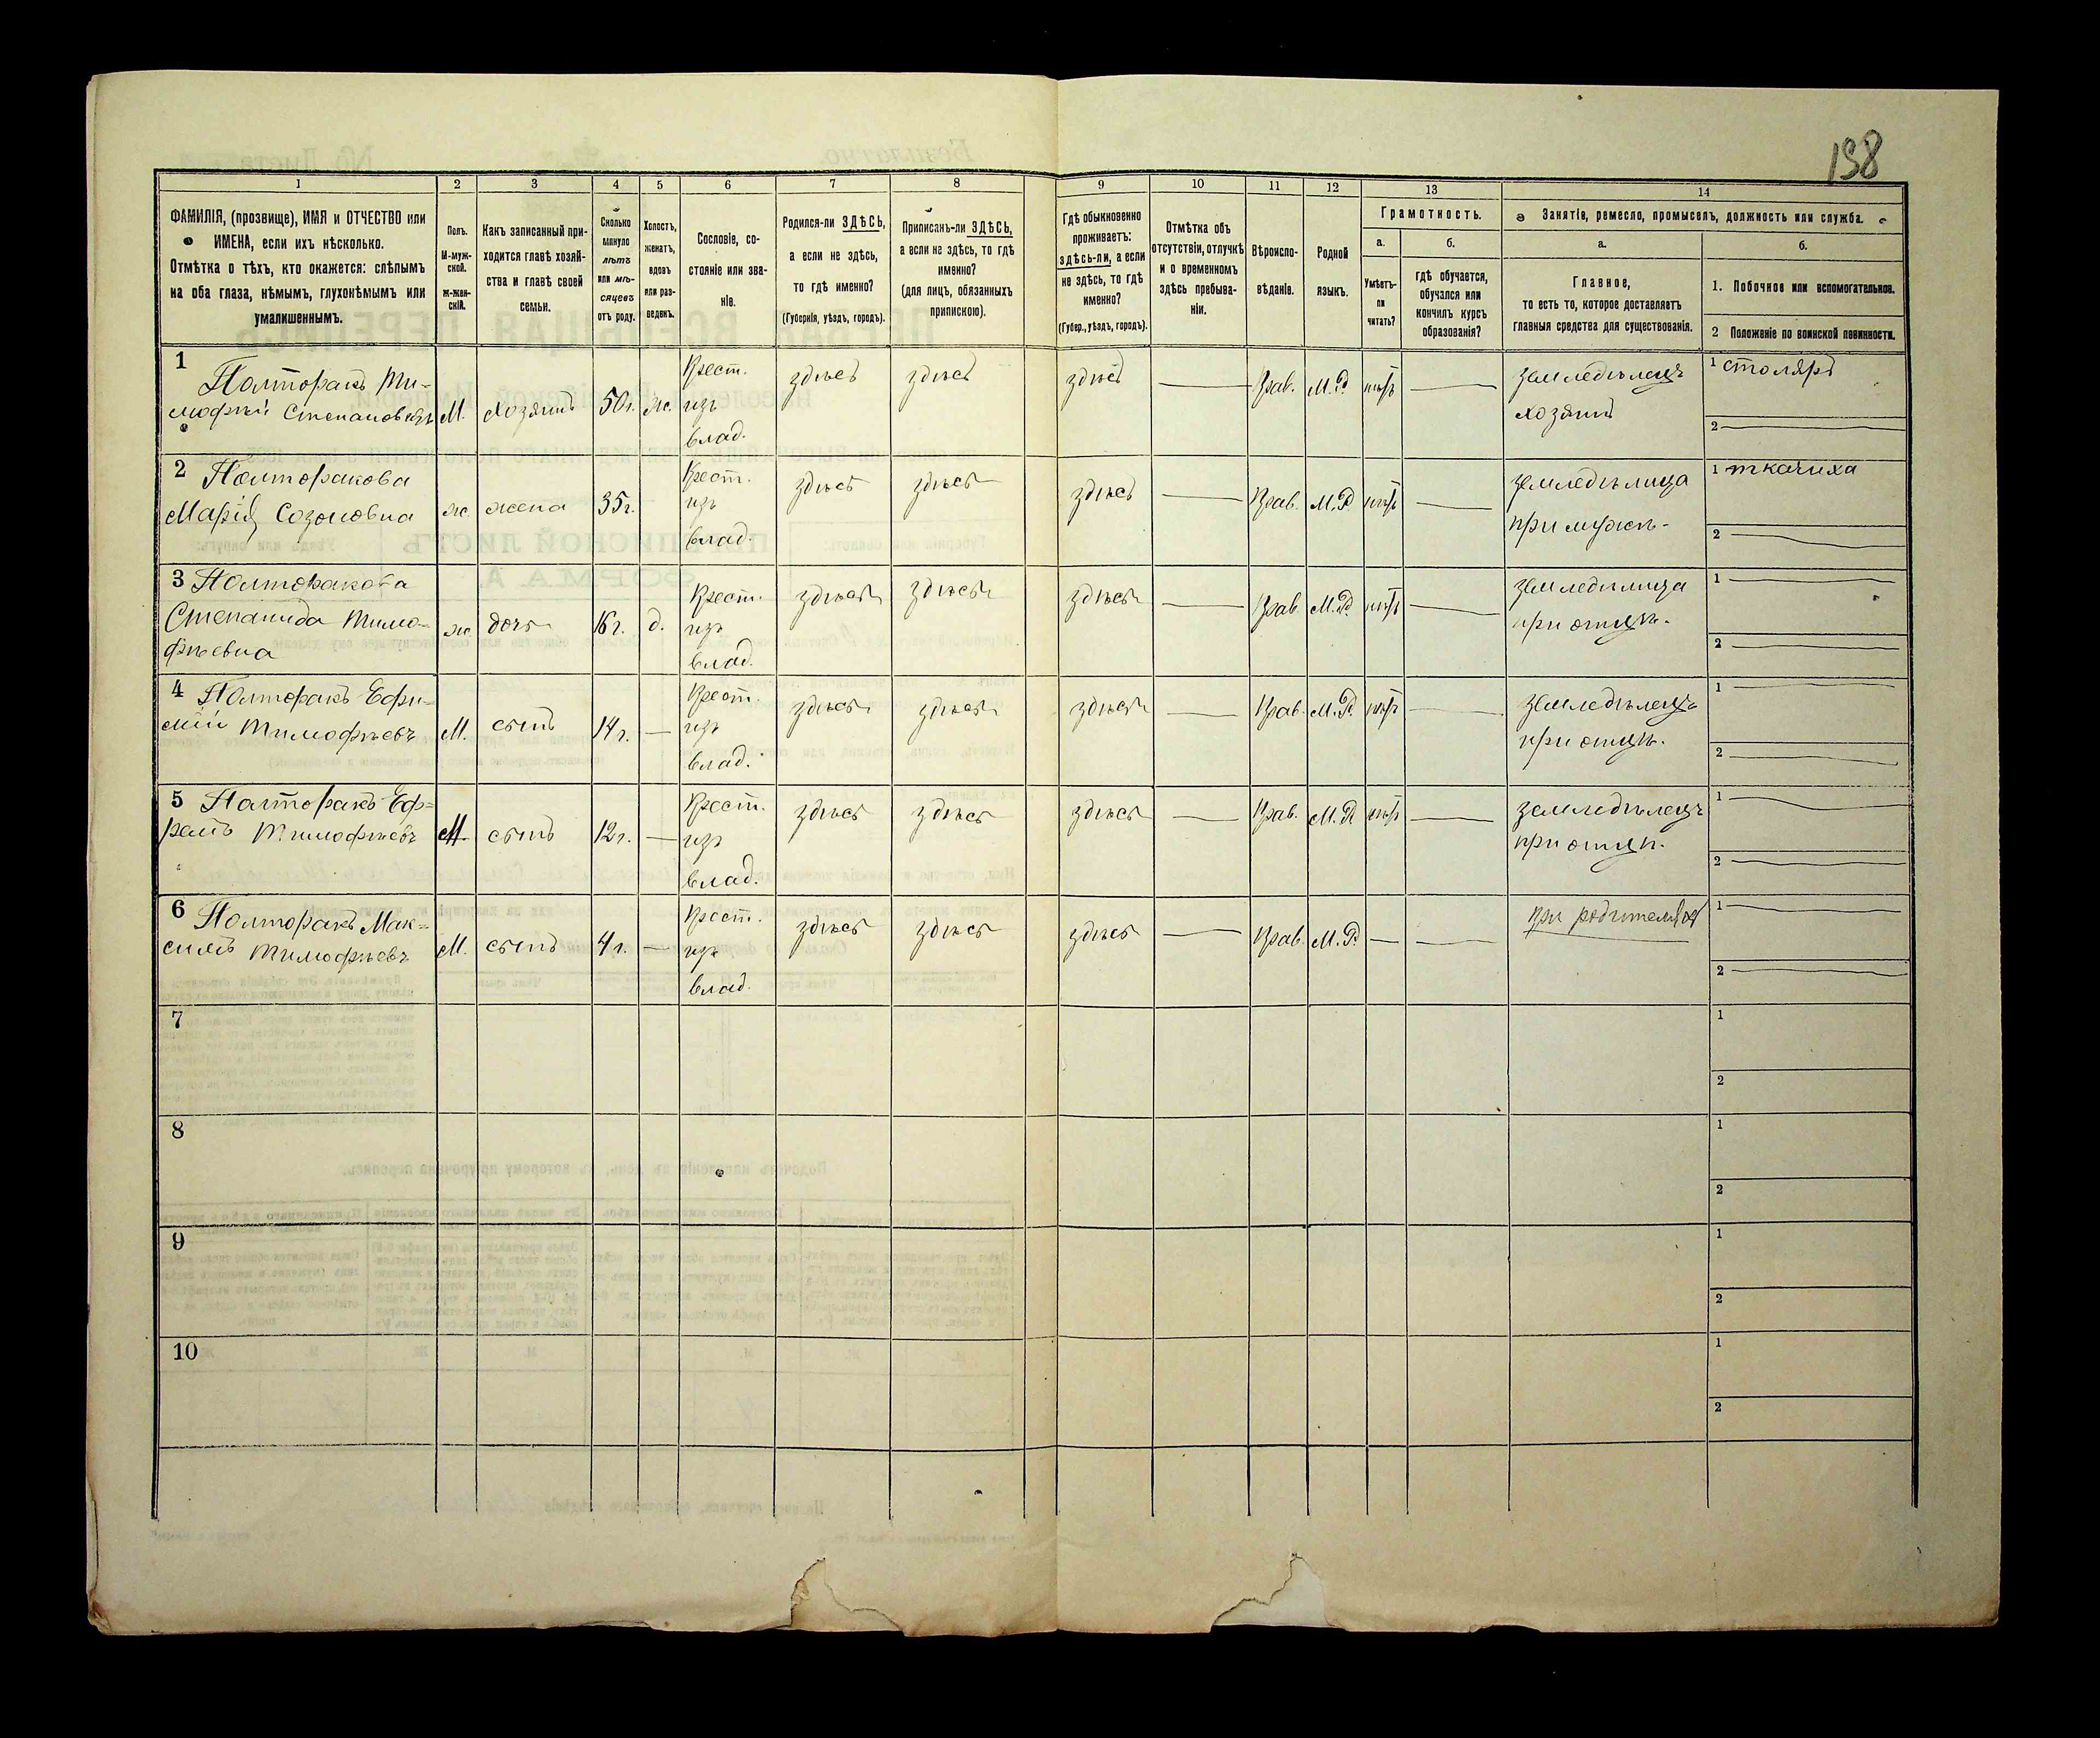 198
1 2 3 4 5 6 7 8 9 10 11 12 13 14
ФАМИЛІЯ, (прозвище), ИМЯ и ОТЧЕСТВО или
ИМЕНА, если ихъ нѣсколько.
Отмѣтка о тѣхъ, кто окажется: слѣпымъ
на оба глаза, нѣмымъ, глухонѣмымъ или
умалишеннымъ.
Полъ.
М-муж-
ской.
ж-жен-
скій.
Какъ записанный при-
ходится главѣ хозяй-
ства и главѣ своей
семьи.
Сколько
минуло
лѣтъ
или мѣ-
сяцевъ
отъ роду.
Холостъ,
женатъ,
вдовъ
или раз-
веденъ.
Сословіе, со-
стояніе или зва-
ніе.
Родился-ли ЗДѢСЬ,
а если не здѣсь,
то гдѣ именно?
(Губернія, уѣздъ, городъ).
Приписанъ-ли ЗДѢСЬ,
а если не здѣсь, то гдѣ
именно?
(для лицъ, обязанныхъ
припискою).
Гдѣ обыкновенно
проживаетъ:
здѣсь-ли, а если
не здѣсь, то гдѣ
именно?
(Губер., уѣздъ, городъ).
Отмѣтка объ
отсутствіи, отлучкѣ
и о временномъ
здѣсь пребыва-
ніи.
Вѣроиспо-
вѣданіе.
Родной
языкъ.
Грамотность.
а.
Умѣетъ-
ли
читать?
б.
гдѣ обучается,
обучался или
кончилъ курсъ
образованія?
Занятіе, ремесло, промыселъ, должность или служба.
а.
Главное,
то есть то, которое доставляетъ
главныя средства для существованія.
б.
1. Побочное или вспомогательное.
2 Положеніе по воинской повинности.
1 Полторакъ Ти-
мофѣй Степановичъ М. хозяинъ 50 г. ж. Крест. изъ влад. здѣсь здѣсь здѣсь — Прав. М.Р. нѣтъ — земледѣлецъ хозяинъ 1 столяръ 2 —
2 Полторакова
Марія Созоновна ж. жена 35 г. Крест. изъ влад. здѣсь здѣсь здѣсь — Прав. М.Р. нѣтъ — земледѣлица при мужѣ. 1 ткачиха 2 —
3 Полторакова
Степанида Тимо-
фѣевна ж. дочь 16 г. д. Крест. изъ влад. здѣсь здѣсь здѣсь — Прав. М.Р. нѣтъ — земледѣлица при отцѣ. 1 — 2 —
4 Полторакъ Ефи-
мій Тимофѣевъ М. сынъ 14 г. — Крест. изъ влад. здѣсь здѣсь здѣсь — Прав. М.Р. нѣтъ — земледѣлецъ при отцѣ. 1 — 2 —
5 Полторакъ Еф-
ремъ Тимофѣевъ М. сынъ 12 г. — Крест. изъ влад. здѣсь здѣсь здѣсь — Прав. М.Р. нѣтъ — земледѣлецъ при отцѣ. 1 — 2 —
6 Полторакъ Мак-
симъ Тимофѣевъ М. сынъ 4 г. — Крест. изъ влад. здѣсь здѣсь здѣсь — Прав. М.Р. — — при родителяхъ 1 — 2 —
7 1 2
8 1 2
9 1 2
10 1 2